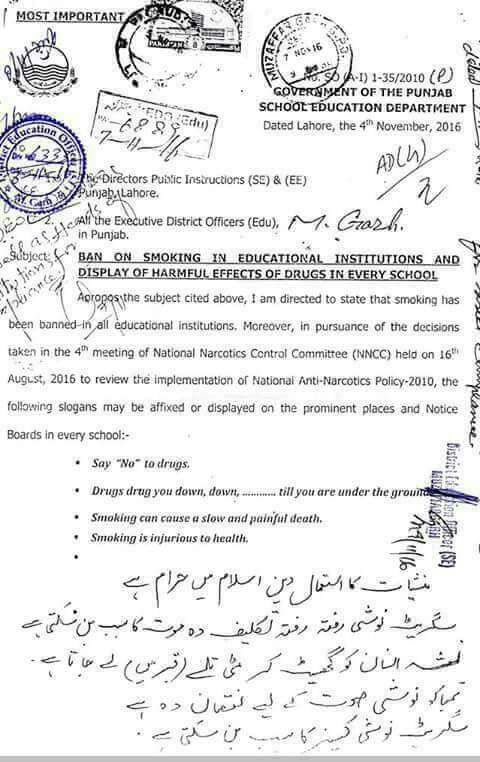 MOST IMPORTANT
MUZAFFAR GARH G.P.O.
7 NOV 16
No. SO (A-I) 1-35/2010 (P)
GOVERNMENT OF THE PUNJAB
SCHOOL EDUCATION DEPARTMENT
Dated Lahore, the 4th November, 2016
EDO (Edu)
7-11-16
District Education Officer
AD(
The Directors Public Instructions (SE) & (EE)
Punjab, Lahore.
2. All the Executive District Officers (Edu), M. Garh.
in Punjab.
Subject: BAN ON SMOKING IN EDUCATIONAL INSTITUTIONS AND
DISPLAY OF HARMFUL EFFECTS OF DRUGS IN EVERY SCHOOL
Apropos the subject cited above, I am directed to state that smoking has
been banned in all educational institutions. Moreover, in pursuance of the decisions
taken in the 4th meeting of National Narcotics Control Committee (NNCC) held on 16th
August, 2016 to review the implementation of National Anti-Narcotics Policy-2010, the
following slogans may be affixed or displayed on the prominent places and Notice
Boards in every school:-
• Say “No” to drugs.
• Drugs drug you down, down, ............ till you are under the ground.
• Smoking can cause a slow and painful death.
• Smoking is injurious to health.
•
District Education Officer (SE)
MUZAFFARGARH
منشیات کا استعمال دین اسلام میں حرام ہے
سگریٹ نوشی رفتہ رفتہ تکلیف دہ موت کا سبب بن سکتی ہے
نشہ انسان کو گھسیٹ کر مٹی تلے (قبر میں) لے جاتا ہے۔
تمباکو نوشی صحت کے لیے نقصان دہ ہے
سگریٹ نوشی کینسر کا سبب بن سکتی ہے۔